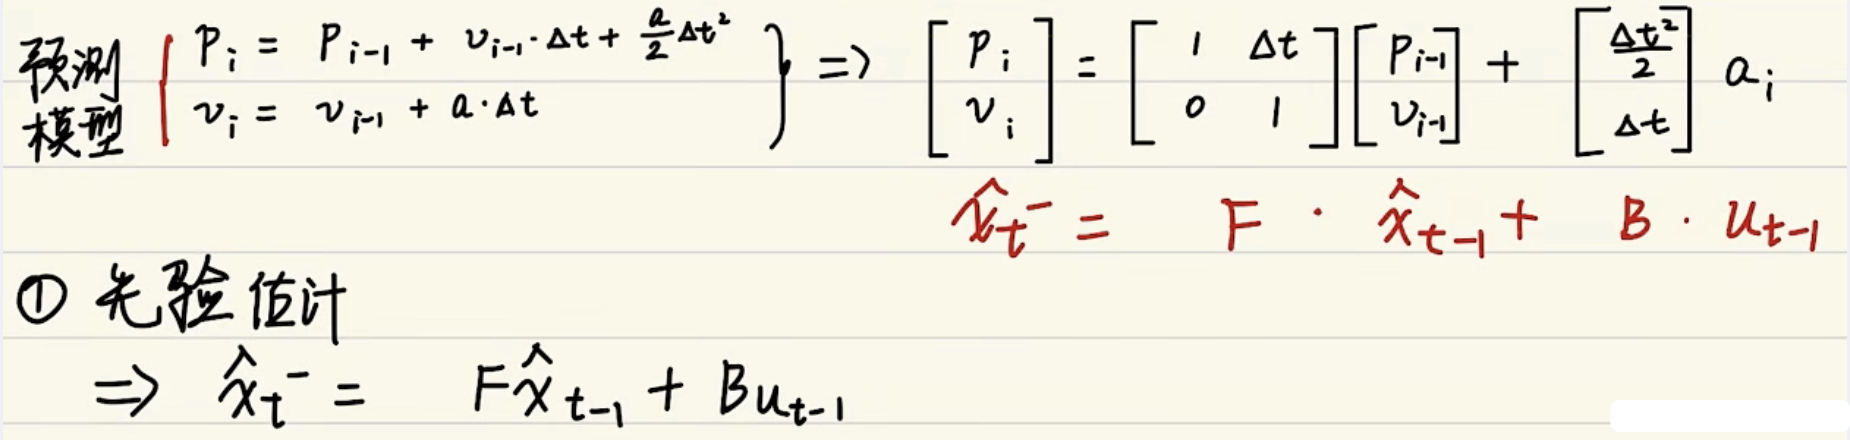 预测模型 { p_i = p_{i-1} + v_{i-1}·Δt + \frac{a}{2}Δt² v_i = v_{i-1} + a·Δt } => \begin{bmatrix} p_i \\ v_i \end{bmatrix} = \begin{bmatrix} 1 & Δt \\ 0 & 1 \end{bmatrix} \begin{bmatrix} p_{i-1} \\ v_{i-1} \end{bmatrix} + \begin{bmatrix} \frac{Δt²}{2} \\ Δt \end{bmatrix} a_i
\hat{x}_t^- = F · \hat{x}_{t-1} + B · u_{t-1}
① 先验估计
=> \hat{x}_t^- = F\hat{x}_{t-1} + Bu_{t-1}